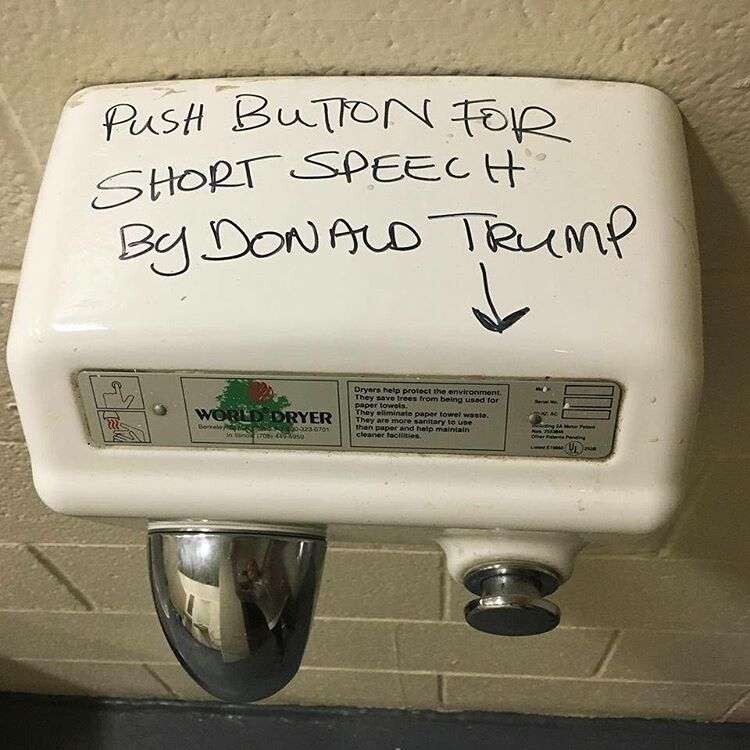 PUSH BUTTON FOR
SHORT SPEECH
By DONALD TRUMP
WORLD DRYER
Dryers help protect the environment.
They save trees from being used for
paper towels.
They eliminate paper towel waste.
They are more sanitary to use
than paper and help maintain
cleaner facilities.
Serial No.
Other Patents Pending
UL